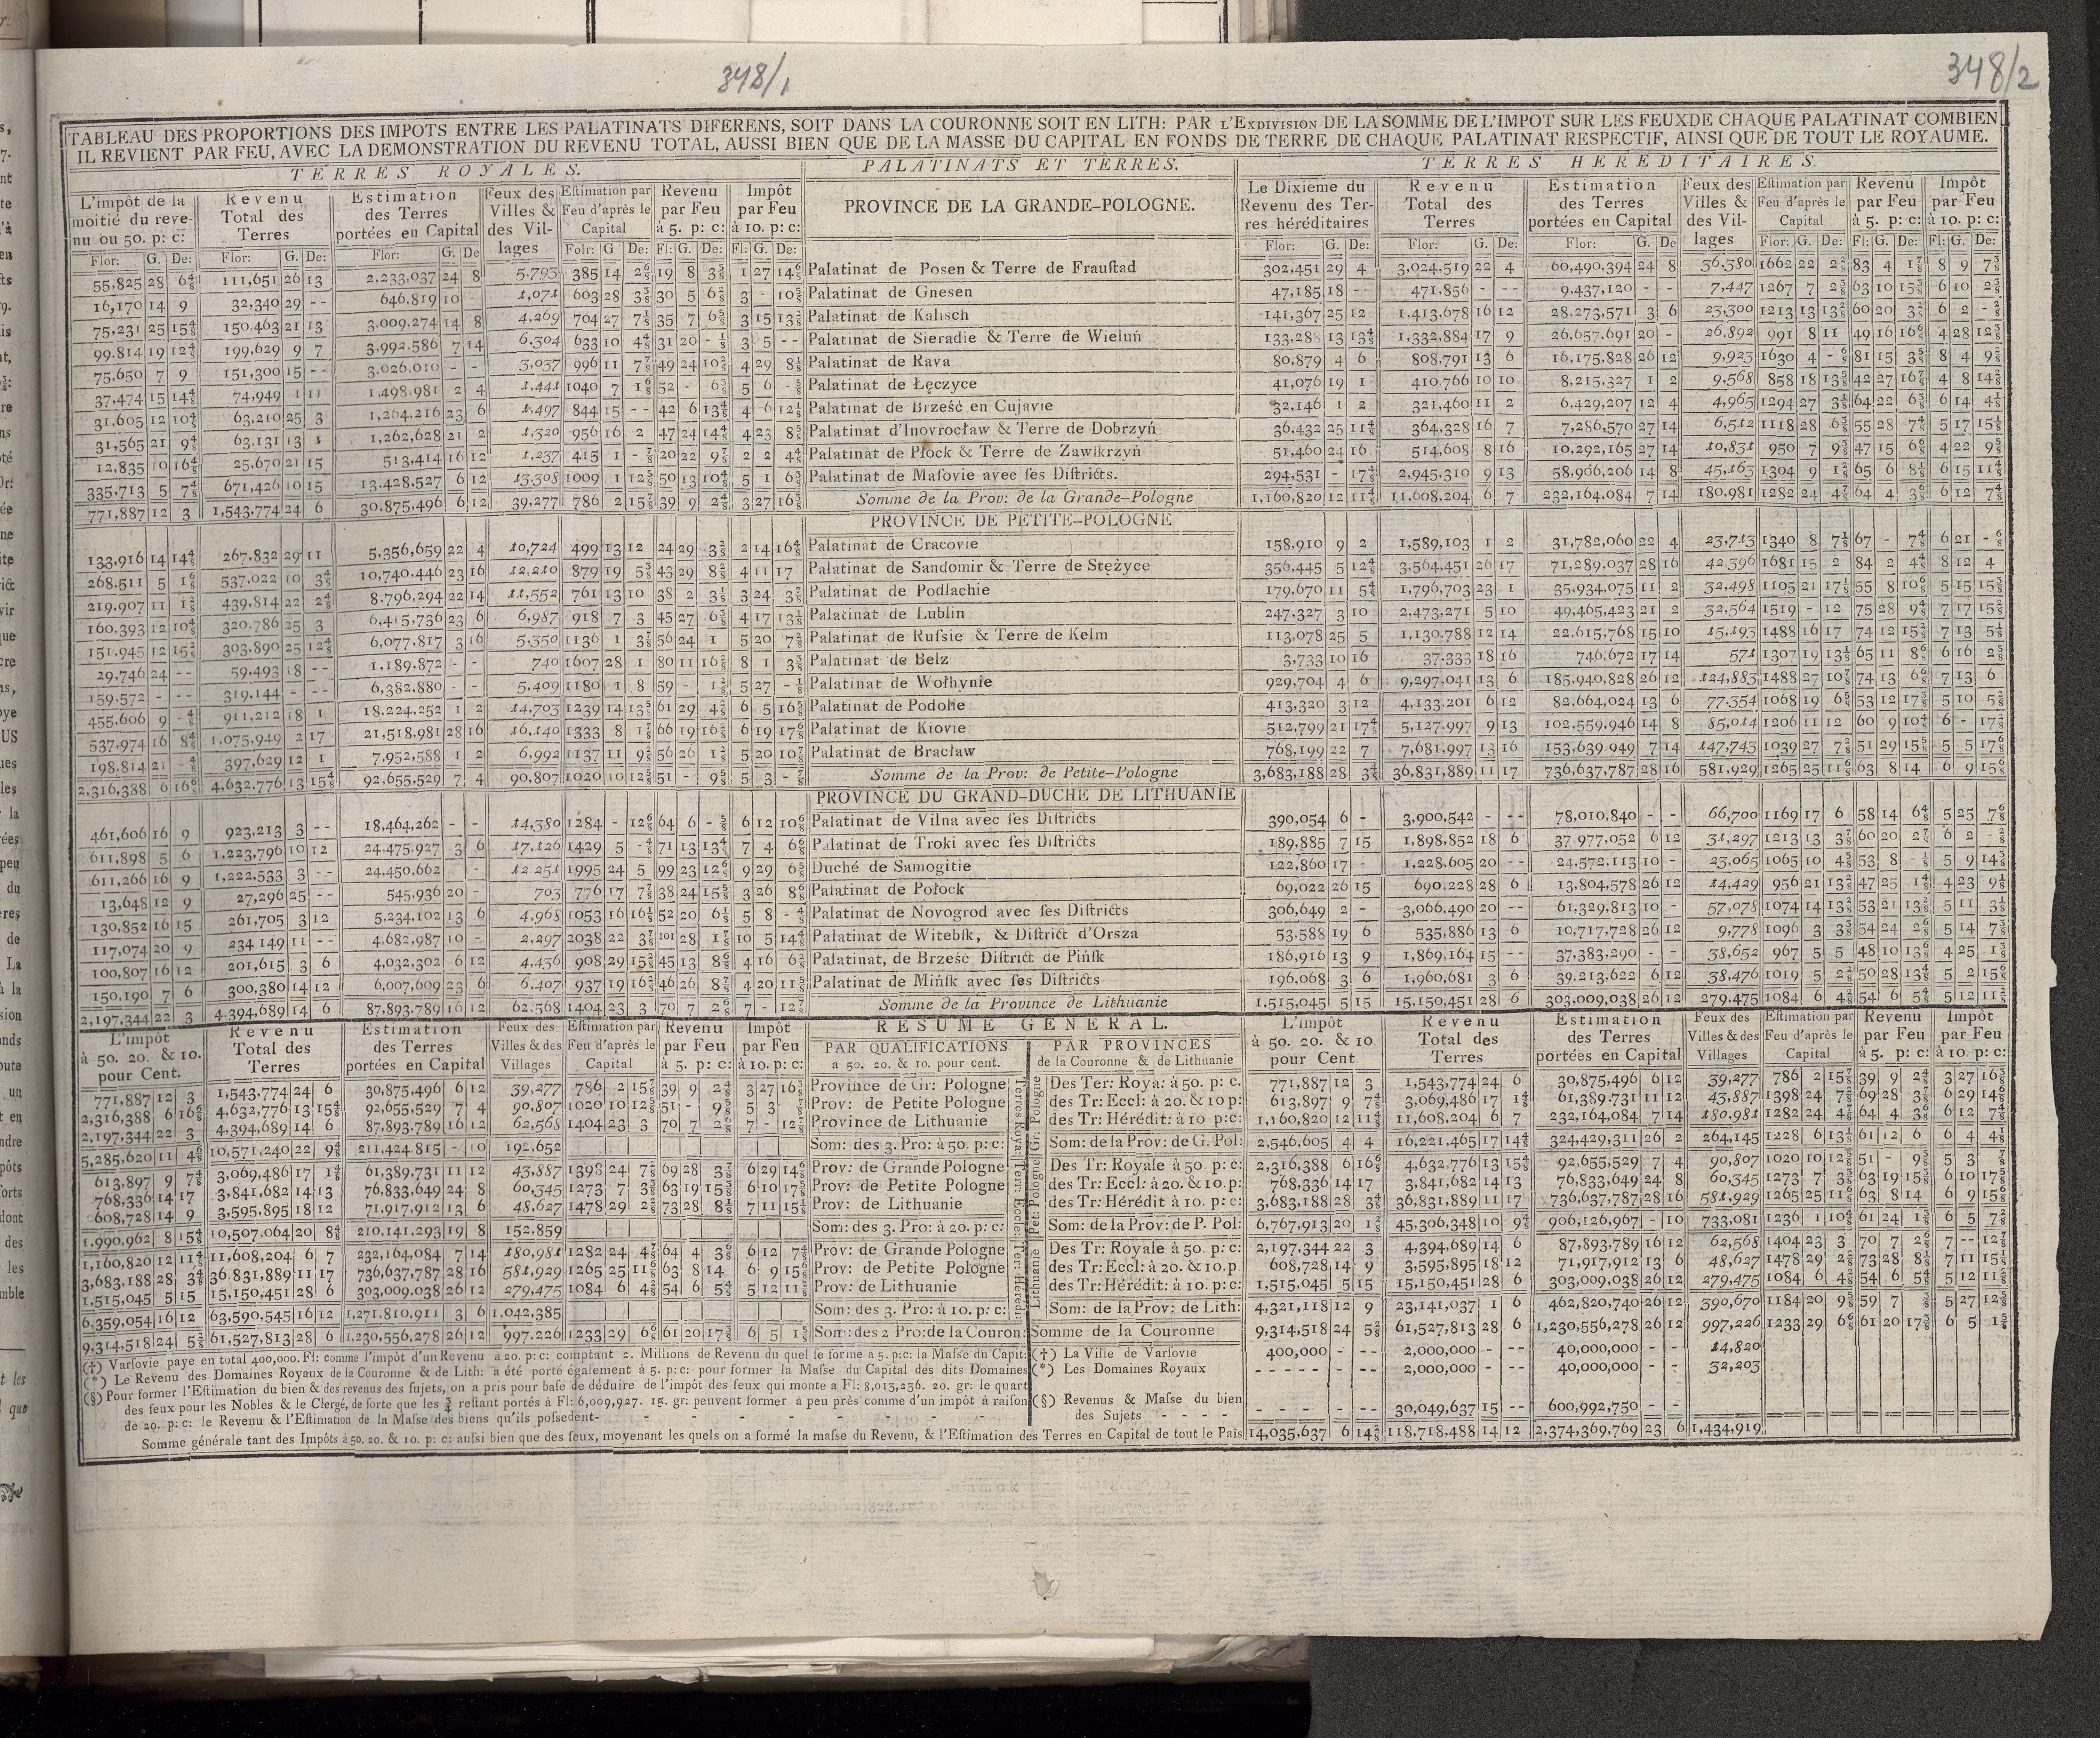 348/1
348/2
TABLEAU DES PROPORTIONS DES IMPOTS ENTRE LES PALATINATS DIFERENS, SOIT DANS LA COURONNE SOIT EN LITH: PAR L'EXDIVISION DE LA SOMME DE L'IMPOT SUR LES FEUXDE CHAQUE PALATINAT COMBIEN
IL REVIENT PAR FEU, AVEC LA DEMONSTRATION DU REVENU TOTAL, AUSSI BIEN QUE DE LA MASSE DU CAPITAL EN FONDS DE TERRE DE CHAQUE PALATINAT RESPECTIF, AINSI QUE DE TOUT LE ROYAUME.
TERRES ROYALES. PALATINATS ET TERRES. TERRES HEREDITAIRES.
L'impôt de la moitié du revenu ou 50. p: c: Revenu Total des Terres Estimation des Terres portées en Capital Feux des Villes & des Villages Eſtimation par Feu d'après le Capital Revenu par Feu à 5. p: c: Impôt par Feu à 10. p: c: PROVINCE DE LA GRANDE-POLOGNE. Le Dixieme du Revenu des Terres héréditaires Revenu Total des Terres Estimation des Terres portées en Capital Feux des Villes & des Villages Eſtimation par Feu d'après le Capital Revenu par Feu à 5. p: c: Impôt par Feu à 10. p: c:
Flor: G. De: Flor: G. De: Flor: G. De Folr: G De: Fl: G. De: Fl: G. De: Flor: G. De: Flor: G. De: Flor: G. De Flor: G. De: Fl: G. De: Fl: G. De:
55,825 28 6 4/8 111,651 26 13 2,233,037 24 8 5,793 385 14 2 6/8 19 8 3 3/8 1 27 14 6/8 Palatinat de Posen & Terre de Frauſtad 302,451 29 4 3,024,519 22 4 60,490,394 24 8 36,380 1662 22 2 2/8 83 4 1 7/8 8 9 7 3/8
16,170 14 9 32,340 29 -- 646,819 10 - 1,071 603 28 3 3/8 30 5 6 2/8 3 - 10 5/8 Palatinat de Gnesen 47,185 18 -- 471,856 - -- 9,437,120 - - 7,447 1267 7 2 3/8 63 10 15 3/8 6 10 2 3/8
75,231 25 15 4/8 150,463 21 13 3,009,274 14 8 4,269 704 27 7 1/8 35 7 6 5/8 3 15 13 2/8 Palatinat de Kalisch 141,367 25 12 1,413,678 16 12 28,273,571 3 6 23,300 1213 13 13 2/8 60 20 3 2/8 6 2 - 2/8
99,814 19 12 4/8 199,629 9 7 3,992,586 7 14 6,304 633 10 4 4/8 31 20 - 1/8 3 5 -- Palatinat de Sieradie & Terre de Wieluń 133,288 13 13 4/8 1,332,884 17 9 26,657,691 20 - 26,892 991 8 11 49 16 16 6/8 4 28 12 3/8
75,650 7 9 151,300 15 -- 3,026,010 - - 3,037 996 11 7 7/8 49 24 10 2/8 4 29 8 1/8 Palatinat de Rava 80,879 4 6 808,791 13 6 16,175,828 26 12 9,923 1630 4 - 6/8 81 15 3 5/8 8 4 9 2/8
37,474 15 14 4/8 74,949 1 11 1,498,981 2 4 1,441 1040 7 1 6/8 52 - 6 3/8 5 6 - 5/8 Palatinat de Łęczyce 41,076 19 1 410,766 10 10 8,215,327 1 2 9,568 858 18 13 5/8 42 27 16 7/8 4 8 14 2/8
31,605 12 10 4/8 63,210 25 3 1,264,216 23 6 1,497 844 15 -- 42 6 13 4/8 4 6 12 1/8 Palatinat de Brześć en Cujavie 32,146 1 2 321,460 11 2 6,429,207 12 4 4,965 1294 27 3 1/8 64 22 6 3/8 6 14 4 1/8
31,565 21 9 4/8 63,131 13 1 1,262,628 21 2 1,320 956 16 2 47 24 14 4/8 4 23 8 5/8 Palatinat d'Inovrocław & Terre de Dobrzyń 36,432 25 11 4/8 364,328 16 7 7,286,570 27 14 6,512 1118 28 6 3/8 55 28 7 4/8 5 17 15 1/8
12,835 10 16 4/8 25,670 21 15 513,414 16 12 1,237 415 1 - 7/8 20 22 9 7/8 2 2 4 4/8 Palatinat de Płock & Terre de Zawſkrzyń 51,460 24 16 514,608 8 16 10,292,165 27 14 10,831 950 7 9 3/8 47 15 6 6/8 4 22 9 5/8
335,713 5 7 4/8 671,426 10 15 13,428,527 6 12 13,308 1009 1 12 5/8 50 13 10 4/8 5 1 6 3/8 Palatinat de Maſovie avec ſes Diſtricts. 294,531 - 17 4/8 2,945,310 9 13 58,906,206 14 8 45,163 1304 9 1 2/8 65 6 8 1/8 6 15 11 4/8
771,887 12 3 1,543,774 24 6 30,875,496 6 12 39,277 786 2 15 7/8 39 9 2 4/8 3 27 16 3/8 Somme de la Prov: de la Grande-Pologne 1,160,820 12 11 4/8 11,608,204 6 7 232,164,084 7 14 180,981 1282 24 4 7/8 64 4 3 6/8 6 12 7 4/8
PROVINCE DE PETITE-POLOGNE
133,916 14 14 4/8 267,832 29 11 5,356,659 22 4 10,724 499 13 12 24 29 3 2/8 2 14 16 4/8 Palatinat de Cracovie 158,910 9 2 1,589,103 1 2 31,782,060 22 4 23,713 1340 8 7 1/8 67 - 7 4/8 6 21 - 6/8
268,511 5 1 6/8 537,022 10 3 4/8 10,740,446 23 16 12,210 879 19 5 3/8 43 29 8 2/8 4 11 17 Palatinat de Sandomir & Terre de Stężyce 356,445 5 12 4/8 3,564,451 26 17 71,289,037 28 16 42,396 1681 15 2 84 2 4 4/8 8 12 4
219,907 11 1 2/8 439,814 22 2 4/8 8,796,294 22 14 11,552 761 13 10 38 2 3 1/8 3 24 3 7/8 Palatinat de Podlachie 179,670 11 5 4/8 1,796,703 23 1 35,934,075 11 2 32,498 1105 21 17 1/8 55 8 10 6/8 5 15 15 3/8
160,393 12 10 4/8 320,786 25 3 6,415,736 23 6 6,987 918 7 3 45 27 6 3/8 4 17 13 1/8 Palatinat de Lublin 247,327 3 10 2,473,271 5 10 49,465,423 21 2 32,564 1519 - 12 75 28 9 4/8 7 17 15 2/8
151,945 12 15 2/8 303,890 25 12 4/8 6,077,817 3 16 5,350 1136 1 3 7/8 56 24 1 5 20 7 2/8 Palatinat de Ruſsie & Terre de Kelm 113,078 25 5 1,130,788 12 14 22,615,768 15 10 15,193 1488 16 17 74 12 15 2/8 7 13 5 1/8
29,746 24 -- 59,493 18 -- 1,189,872 - - 740 1607 28 1 80 11 16 2/8 8 1 3 3/8 Palatinat de Belz 3,733 10 16 37,333 18 16 746,672 17 14 571 1307 19 13 1/8 65 11 8 6/8 6 16 2 5/8
159,572 - -- 319,144 - -- 6,382,880 - - 5,409 1180 1 8 59 - 1 2/8 5 27 - 1/8 Palatinat de Wołhynie 929,704 4 6 9,297,041 13 6 185,940,828 26 12 124,883 1488 27 10 7/8 74 13 6 6/8 7 13 6
455,606 9 - 4/8 911,212 18 1 18,224,252 1 2 14,703 1239 14 13 5/8 61 29 4 2/8 6 5 16 5/8 Palatinat de Podolie 413,320 3 12 4,133,201 6 12 82,664,024 13 6 77,354 1068 19 6 5/8 53 12 17 3/8 5 10 5 2/8
537,974 16 8 4/8 1,075,949 2 17 21,518,981 28 16 16,140 1333 8 1 7/8 66 19 16 2/8 6 19 17 6/8 Palatinat de Kiovie 512,799 21 17 4/8 5,127,997 9 13 102,559,946 14 8 85,014 1206 11 12 60 9 10 4/8 6 - 17 2/8
198,814 21 - 4/8 397,629 12 1 7,952,588 1 2 6,992 1137 11 9 2/8 56 26 1 2/8 5 20 10 7/8 Palatinat de Bracław 768,199 22 7 7,681,997 13 16 153,639,949 7 14 147,743 1039 27 7 2/8 51 29 15 5/8 5 5 17 6/8
2,316,388 6 16 6/8 4,632,776 13 15 4/8 92,655,529 7 4 90,807 1020 10 12 5/8 51 - 9 5/8 5 3 - 7/8 Somme de la Prov: de Petite-Pologne 3,683,188 28 3 4/8 36,831,889 11 17 736,637,787 28 16 581,929 1265 25 11 6/8 63 8 14 6 9 15 6/8
PROVINCE DU GRAND-DUCHE DE LITHUANIE
461,606 16 9 923,213 3 -- 18,464,262 - - 14,380 1284 - 12 6/8 64 6 - 5/8 6 12 10 6/8 Palatinat de Vilna avec ſes Diſtricts 390,054 6 - 3,900,542 - -- 78,010,840 - - 66,700 1169 17 6 58 14 6 4/8 5 25 7 6/8
611,898 5 6 1,223,796 10 12 24,475,927 3 6 17,126 1429 5 - 4/8 71 13 13 4/8 7 4 6 6/8 Palatinat de Troki avec ſes Diſtricts 189,885 7 15 1,898,852 18 6 37,977,052 6 12 31,297 1213 13 3 7/8 60 20 2 7/8 6 2 - 2/8
611,266 16 9 1,222,533 3 -- 24,450,662 - - 12,251 1995 24 5 99 23 12 6/8 9 29 6 5/8 Duché de Samogitie 122,860 17 - 1,228,605 20 -- 24,572,113 10 - 23,065 1065 10 4 5/8 53 8 - 1/8 5 9 14 3/8
13,648 12 9 27,296 25 -- 545,936 20 - 703 776 17 7 7/8 38 24 15 5/8 3 26 8 6/8 Palatinat de Połock 69,022 26 15 690,228 28 6 13,804,578 26 12 14,429 956 21 13 2/8 47 25 1 4/8 4 23 9 1/8
130,852 16 15 261,705 3 12 5,234,102 13 6 4,968 1053 16 16 1/8 52 20 6 1/8 5 8 - 4/8 Palatinat de Novogrod avec ſes Diſtricts 306,649 2 - 3,066,490 20 -- 61,329,813 10 - 57,078 1074 14 13 2/8 53 21 13 2/8 5 11 3 1/8
117,074 20 9 234,149 11 -- 4,682,987 10 - 2,297 2038 22 3 7/8 101 28 1 7/8 10 5 14 4/8 Palatinat de Witebſk, & Diſtrict d'Orsza 53,588 19 6 535,886 13 6 10,717,728 26 12 9,778 1096 3 3 3/8 54 24 2 6/8 5 14 7 3/8
100,807 16 12 201,615 3 6 4,032,302 6 12 4,436 908 29 15 2/8 45 13 8 6/8 4 16 6 2/8 Palatinat, de Brześć Diſtrict de Pińſk 186,916 13 9 1,869,164 15 -- 37,383,290 - - 38,652 967 5 5 48 10 13 6/8 4 25 1 3/8
150,190 7 6 300,380 14 12 6,007,609 23 6 6,407 937 19 16 3/8 46 26 8 7/8 4 20 11 5/8 Palatinat de Mińſk avec ſes Diſtricts 196,068 3 6 1,960,681 3 6 39,213,622 6 12 38,476 1019 5 2 2/8 50 28 13 4/8 5 2 15 6/8
2,197,344 22 3 4,394,689 14 6 87,893,789 16 12 62,568 1404 23 3 70 7 2 6/8 7 - 12 7/8 Somme de la Province de Lithuanie 1,515,045 5 15 15,150,451 28 6 303,009,038 26 12 279,475 1084 6 4 2/8 54 6 5 4/8 5 12 11 2/8
L'impôt à 50. 20. & 10. pour Cent. Revenu Total des Terres Estimation des Terres portées en Capital Feux des Villes & des Villages Eſtimation par Feu d'après le Capital Revenu par Feu à 5. p: c: Impôt par Feu à 10. p: c: RESUME GENERAL. L'impôt à 50. 20. & 10 pour Cent Revenu Total des Terres Estimation des Terres portées en Capital Feux des Villes & des Villages Eſtimation par Feu d'après le Capital Revenu par Feu à 5. p: c: Impôt par Feu à 10. p: c:
PAR QUALIFICATIONS a 50. 20. & 10. pour cent. PAR PROVINCES de la Couronne & de Lithuanie
Terres Roya: Terr: Eccle: Ter: Héréd:
Gr: Pologne Pet: Pologne Lithuanie
771,887 12 3 1,543,774 24 6 30,875,496 6 12 39,277 786 2 15 7/8 39 9 2 4/8 3 27 16 3/8 Province de Gr: Pologne Des Ter: Roya: à 50. p: c. 771,887 12 3 1,543,774 24 6 30,875,496 6 12 39,277 786 2 15 7/8 39 9 2 4/8 3 27 16 3/8
2,316,388 6 16 6/8 4,632,776 13 15 4/8 92,655,529 7 4 90,807 1020 10 12 5/8 51 - 9 5/8 5 3 7/8 Prov: de Petite Pologne des Tr: Eccl: à 20. & 10 p: 613,897 9 7 4/8 3,069,486 17 1 4/8 61,389,731 11 12 43,887 1398 24 7 5/8 69 28 3 7/8 6 29 14 6/8
2,197,344 22 3 4,394,689 14 6 87,893,789 16 12 62,568 1404 23 3 70 7 2 6/8 7 - 12 7/8 Province de Lithuanie des Tr: Hérédit: à 10 p:c: 1,160,820 12 11 4/8 11,608,204 6 7 232,164,084 7 14 180,981 1282 24 4 7/8 64 4 3 6/8 6 12 7 4/8
5,285,620 11 4 6/8 10,571,240 22 9 4/8 211,424,815 - 10 192,652 Som: des 3. Pro: à 50. p: c: Som: de la Prov: de G. Pol: 2,546,605 4 4 16,221,465 17 14 4/8 324,429,311 26 2 264,145 1228 6 13 1/8 61 12 6 6 4 4 1/8
613,897 9 7 4/8 3,069,486 17 1 4/8 61,389,731 11 12 43,887 1398 24 7 5/8 69 28 3 7/8 6 29 14 6/8 Prov: de Grande Pologne Des Tr: Royale à 50. p: c: 2,316,388 6 16 6/8 4,632,776 13 15 4/8 92,655,529 7 4 90,807 1020 10 12 5/8 51 - 9 5/8 5 3 7/8
768,336 14 17 3,841,682 14 13 76,833,649 24 8 60,345 1273 7 3 3/8 63 19 15 3/8 6 10 17 5/8 Prov: de Petite Pologne des Tr: Eccl: à 20. & 10. p: 768,336 14 17 3,841,682 14 13 76,833,649 24 8 60,345 1273 7 3 3/8 63 19 15 3/8 6 10 17 5/8
608,728 14 9 3,595,895 18 12 71,917,912 13 6 48,627 1478 29 2 2/8 73 28 8 1/8 7 11 15 1/8 Prov: de Lithuanie des Tr: Hérédit à 10. p: c: 3,683,188 28 3 4/8 36,831,889 11 17 736,637,787 28 16 581,929 1265 25 11 6/8 63 8 14 6 9 15 6/8
1,990,962 8 15 4/8 10,507,064 20 8 4/8 210,141,293 19 8 152,859 Som: des 3. Pro: à 20. p: c: Som: de la Prov: de P. Pol: 6,767,913 20 1 2/8 45,306,348 10 9 4/8 906,126,967 - 10 733,081 1236 1 10 4/8 61 24 1 3/8 6 5 7 2/8
1,160,820 12 11 4/8 11,608,204 6 7 232,164,084 7 14 180,981 1282 24 4 7/8 64 4 3 6/8 6 12 7 4/8 Prov: de Grande Pologne Des Tr: Royale à 50. p: c: 2,197,344 22 3 4,394,689 14 6 87,893,789 16 12 62,568 1404 23 3 70 7 2 6/8 7 -- 12 7/8
3,683,188 28 3 4/8 36,831,889 11 17 736,637,787 28 16 581,929 1265 25 11 6/8 63 8 14 6 9 15 6/8 Prov: de Petite Pologne des Tr: Eccl: à 20. & 10. p 608,728 14 9 3,595,895 18 12 71,917,912 13 6 48,627 1478 29 2 2/8 73 28 8 1/8 7 11 15 1/8
1,515,045 5 15 15,150,451 28 6 303,009,038 26 12 279,475 1084 6 4 2/8 54 6 5 4/8 5 12 11 2/8 Prov: de Lithuanie des Tr: Hérédit: à 10. p: c: 1,515,045 5 15 15,150,451 28 6 303,009,038 26 12 279,475 1084 6 4 2/8 54 6 5 4/8 5 12 11 2/8
6,359,054 16 12 63,590,545 16 12 1,271,810,911 3 6 1,042,385 Som: des 3. Pro: à 10. p: c: Som: de la Prov: de Lith: 4,321,118 12 9 23,141,037 1 6 462,820,740 26 12 390,670 1184 20 9 5/8 59 7 3/8 5 27 12 5/8
9,314,518 24 5 2/8 61,527,813 28 6 1,230,556,278 26 12 997,226 1233 29 6 6/8 61 20 17 3/8 6 5 1 5/8 Som: des 2 Pro: de la Couron: Somme de la Couronne 9,314,518 24 5 2/8 61,527,813 28 6 1,230,556,278 26 12 997,226 1233 29 6 6/8 61 20 17 3/8 6 5 1 5/8
(†) Varſovie paye en total 400,000. Fl: comme l'impôt d'un Revenu à 20. p: c: comptant 2. Millions de Revenu du quel ſe forme à 5. p:c: la Maſse du Capit:
(*) Le Revenu des Domaines Royaux de la Couronne & de Lith: a été porté également à 5. p:c: pour former la Maſse du Capital des dits Domaines
(§) Pour former l'Eſtimation du bien & des revenus des ſujets, on a pris pour baſe de déduire de l'impôt des feux qui monte a Fl: 8,013,236. 20. gr: le quart
des feux pour les Nobles & le Clergé, de ſorte que les 3/4 reſtant portés à Fl: 6,009,927. 15. gr: peuvent former à peu près comme d'un impôt à raiſon
de 20. p: c: le Revenu & l'Eſtimation de la Maſse des biens qu'ils poſsedent
(†) La Ville de Varſovie 400,000 - -- 2,000,000 - -- 40,000,000 - - 14,820
(*) Les Domaines Royaux - - - - - 2,000,000 - -- 40,000,000 - - 32,203
(§) Revenus & Maſse du bien
des Sujets - - - - 30,049,637 15 -- 600,992,750 - -
Somme générale tant des Impôts à 50. 20. & 10. p: c: auſsi bien que des feux, moyenant les quels on a formé la maſse du Revenu, & l'Eſtimation des Terres en Capital de tout le Païs 14,035,637 6 14 2/8 118,718,488 14 12 2,374,369,769 23 6 1,434,919